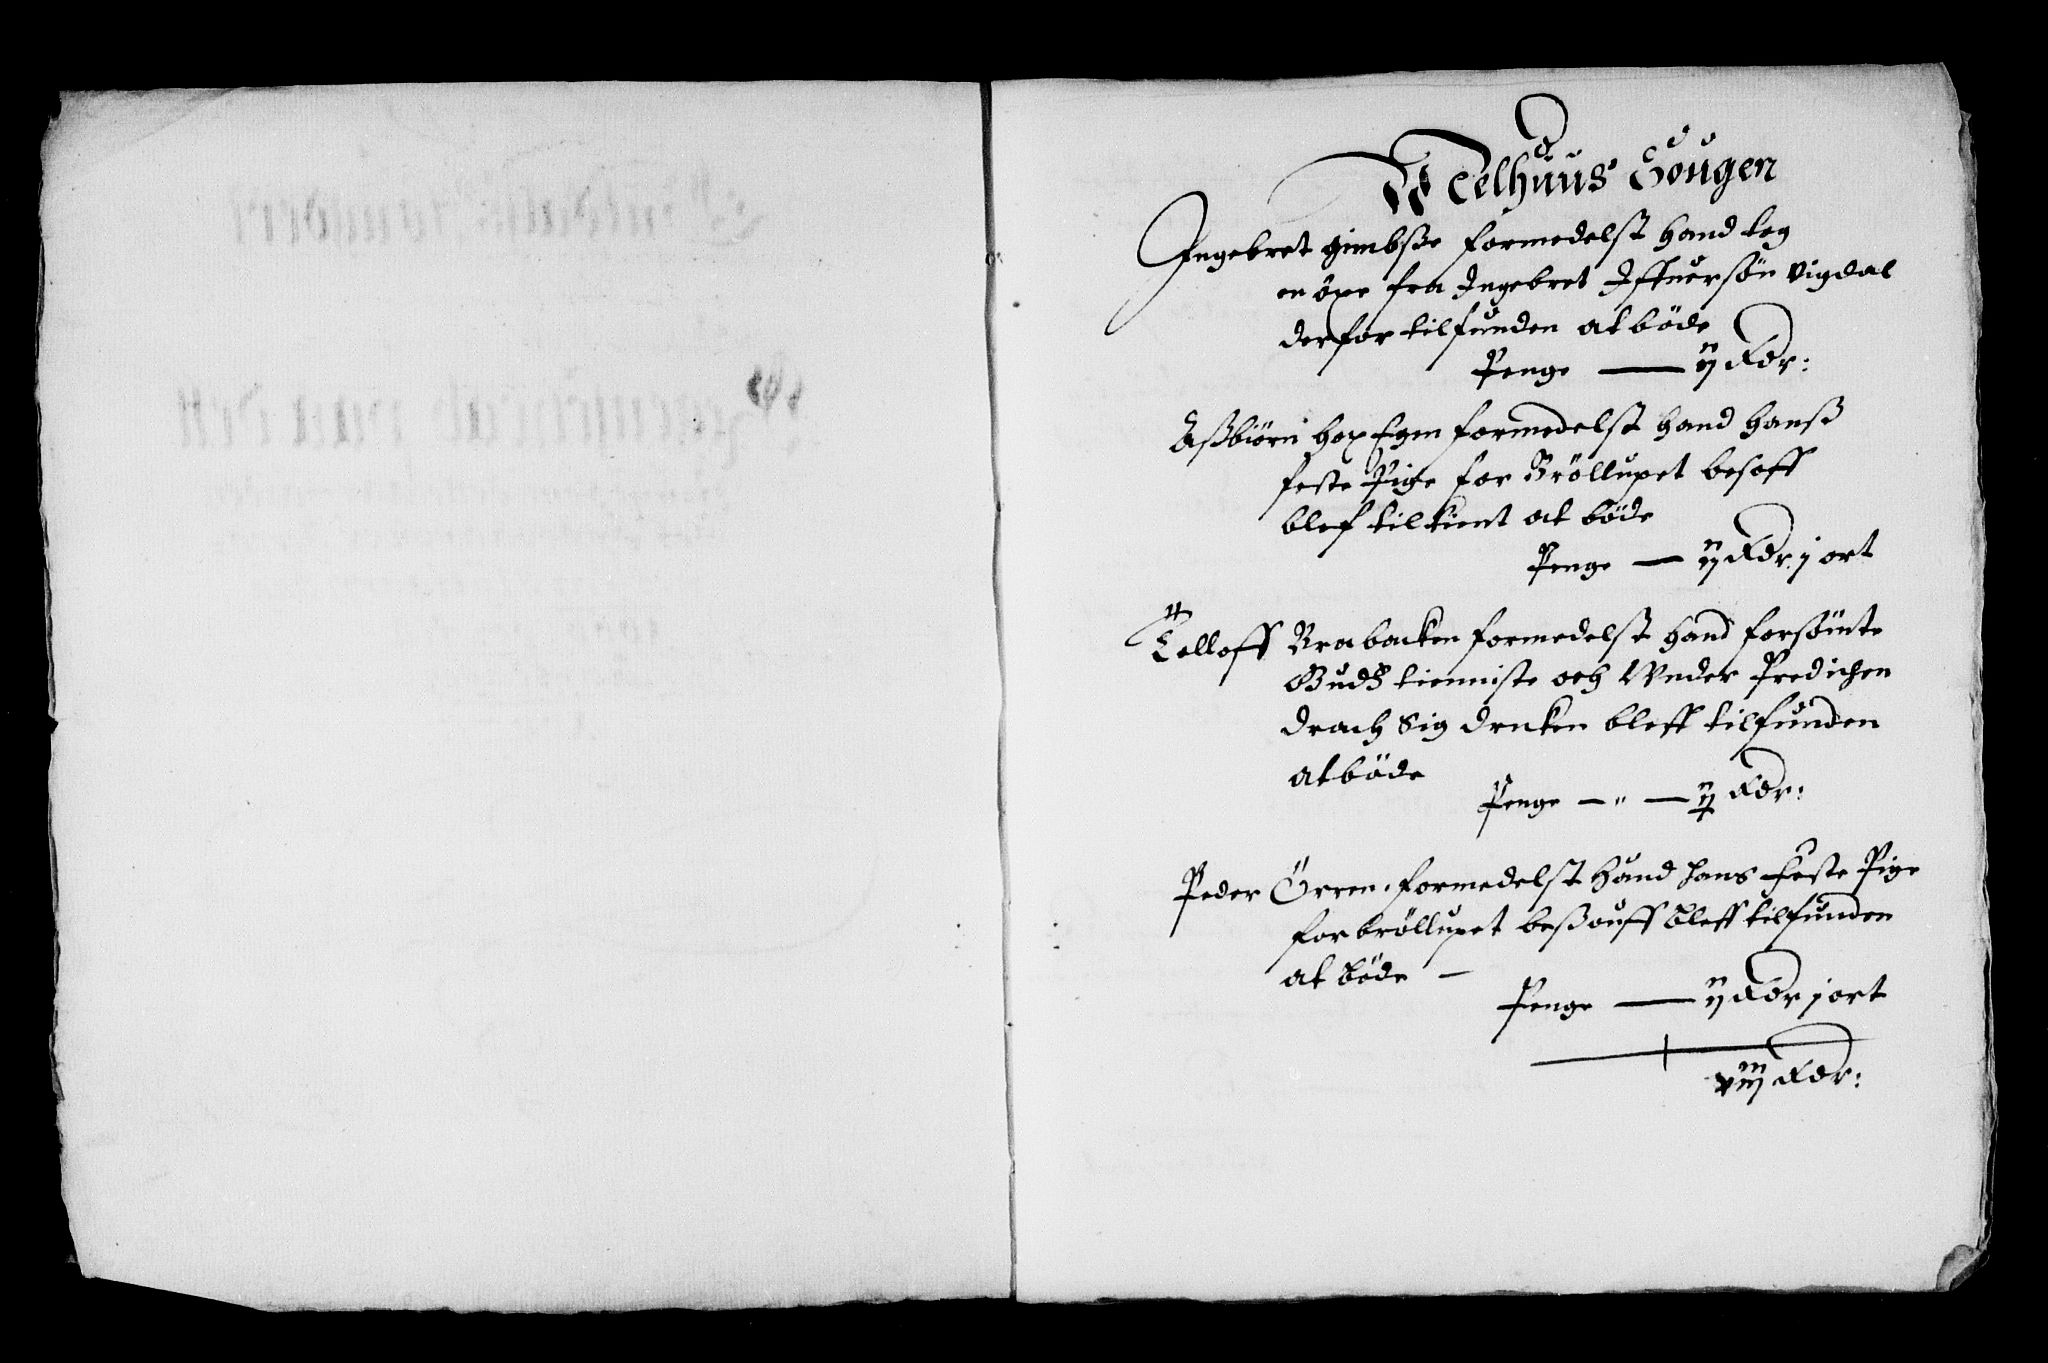 Melhuus Sougen
Ingebret gimbsße formedelst hand tog
en öxe fra Ingebret Iffuersön vigdal
derfor tilfunden at böde
Penge — ij dlr:
Aßbiörn formedelst hand hanß
feste Pige for Bröllupet besoff
blef tiltient at böde
Penge — ij dlr. j ort
Tolloff Brabacken formedelst hand forsömte
Gudß tienniste och Vnder Predichen
drach sig drucken bleff tilfunden
at böde
Penge — " — dlr:
Peder Örren. formedelst hand hans feste Pige
for bröllupet beßouff bleff tilfunden
at böde —
Penge — ij dlr j ort
viij dlr: